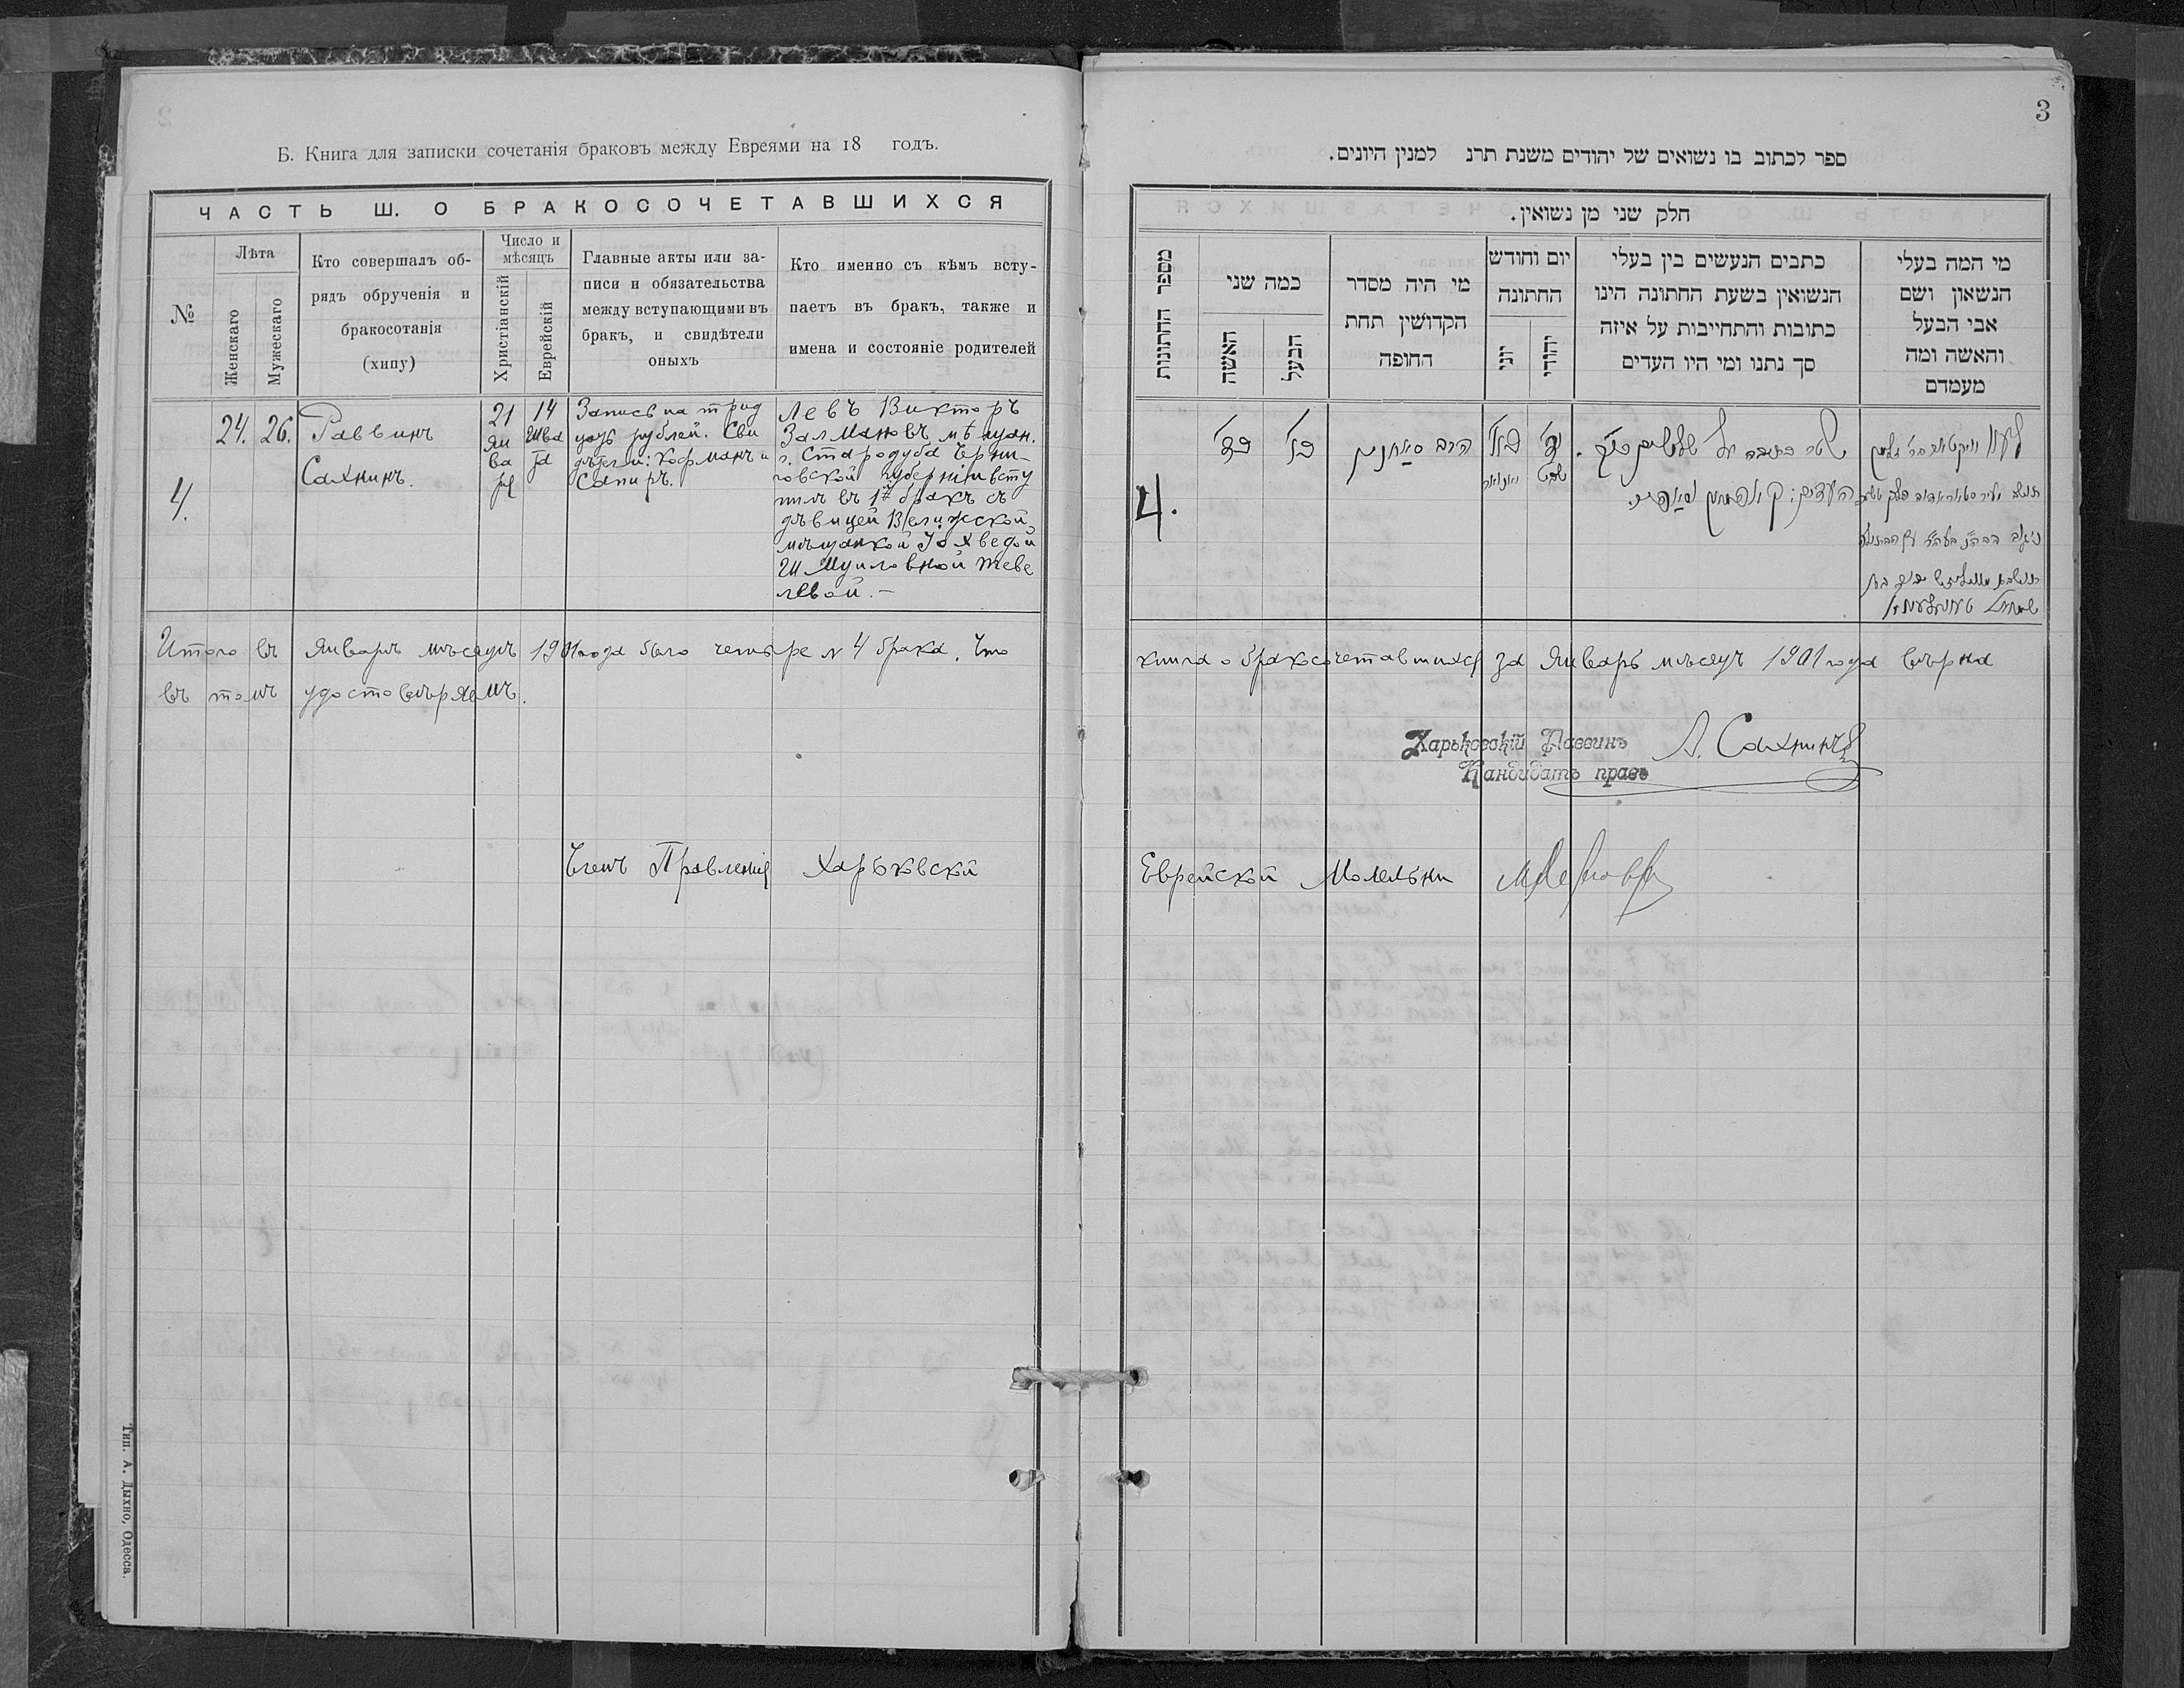 Б. Книга для записки сочетанія браковъ между Евреями на 18 годъ.
ЧАСТЬ Ш. О БРАКОСОЧЕТАВШИХСЯ
№
Лѣта
Женскаго
Мужескаго
Кто совершалъ об-
рядъ обрученія и
бракосотанія
(хипу)
Число и
мѣсяцъ
Христіанскій
Еврейскій
Главные акты или за-
писи и обязательства
между вступающими въ
бракъ, и свидѣтели
оныхъ
Кто именно съ кѣмъ всту-
паетъ въ бракъ, также и
имена и состояніе родителей
4.
24.
26.
Раввинъ
Сахнинъ.
21
Ян
ва
ря
14
Шва
та
Запись на трид
цать рублей. Сви
дѣтели: Кофманъ и
Сапиръ.
Левъ Викторъ
Залмановъ мѣщан.
г. Стародуба Черни-
говской губерніи всту
пилъ въ 1й бракъ съ
дѣвицей Велижской
мѣщанкой Іохведой
Шмуиловной Теве
левой.—
Итого въ Январѣ мѣсяцѣ 1901 года было четыре № 4 брака. Что
въ томъ удостовѣряемъ.
Членъ Правленія Харьковской
Тип. А. Дыхно, Одесса.
3
ספר לכתוב בו נשואים של יהודים משנת תרנ למנין היונים.
חלק שני מן נשואין.
מספר החתונות
כמה שני
האשה
הבעל
מי היה מסדר
הקדושין תחת
החופה
יום וחודש
החתונה
יוני
יהודי
כתבים הנעשים בין בעלי
הנשואין בשעת החתונה הינו
כתובות והתחייבות על איזה
סך נתנו ומי היו העדים
מי המה בעלי
הנשאון ושם
אבי הבעל
והאשה ומה
מעמדם
4.
כד׳
כו׳
הרב סאחנין
כא׳
יאנואר
יד׳
שבט
שטר כתובה על שלשים
העדים: קופמאן סאפיר
книга о бракосочетавшихся за Январь мѣсяцъ 1901 года вѣрна
Харьковскій Раввинъ
Кандидатъ правъ
А. Сахнинъ
Еврейской Молельни